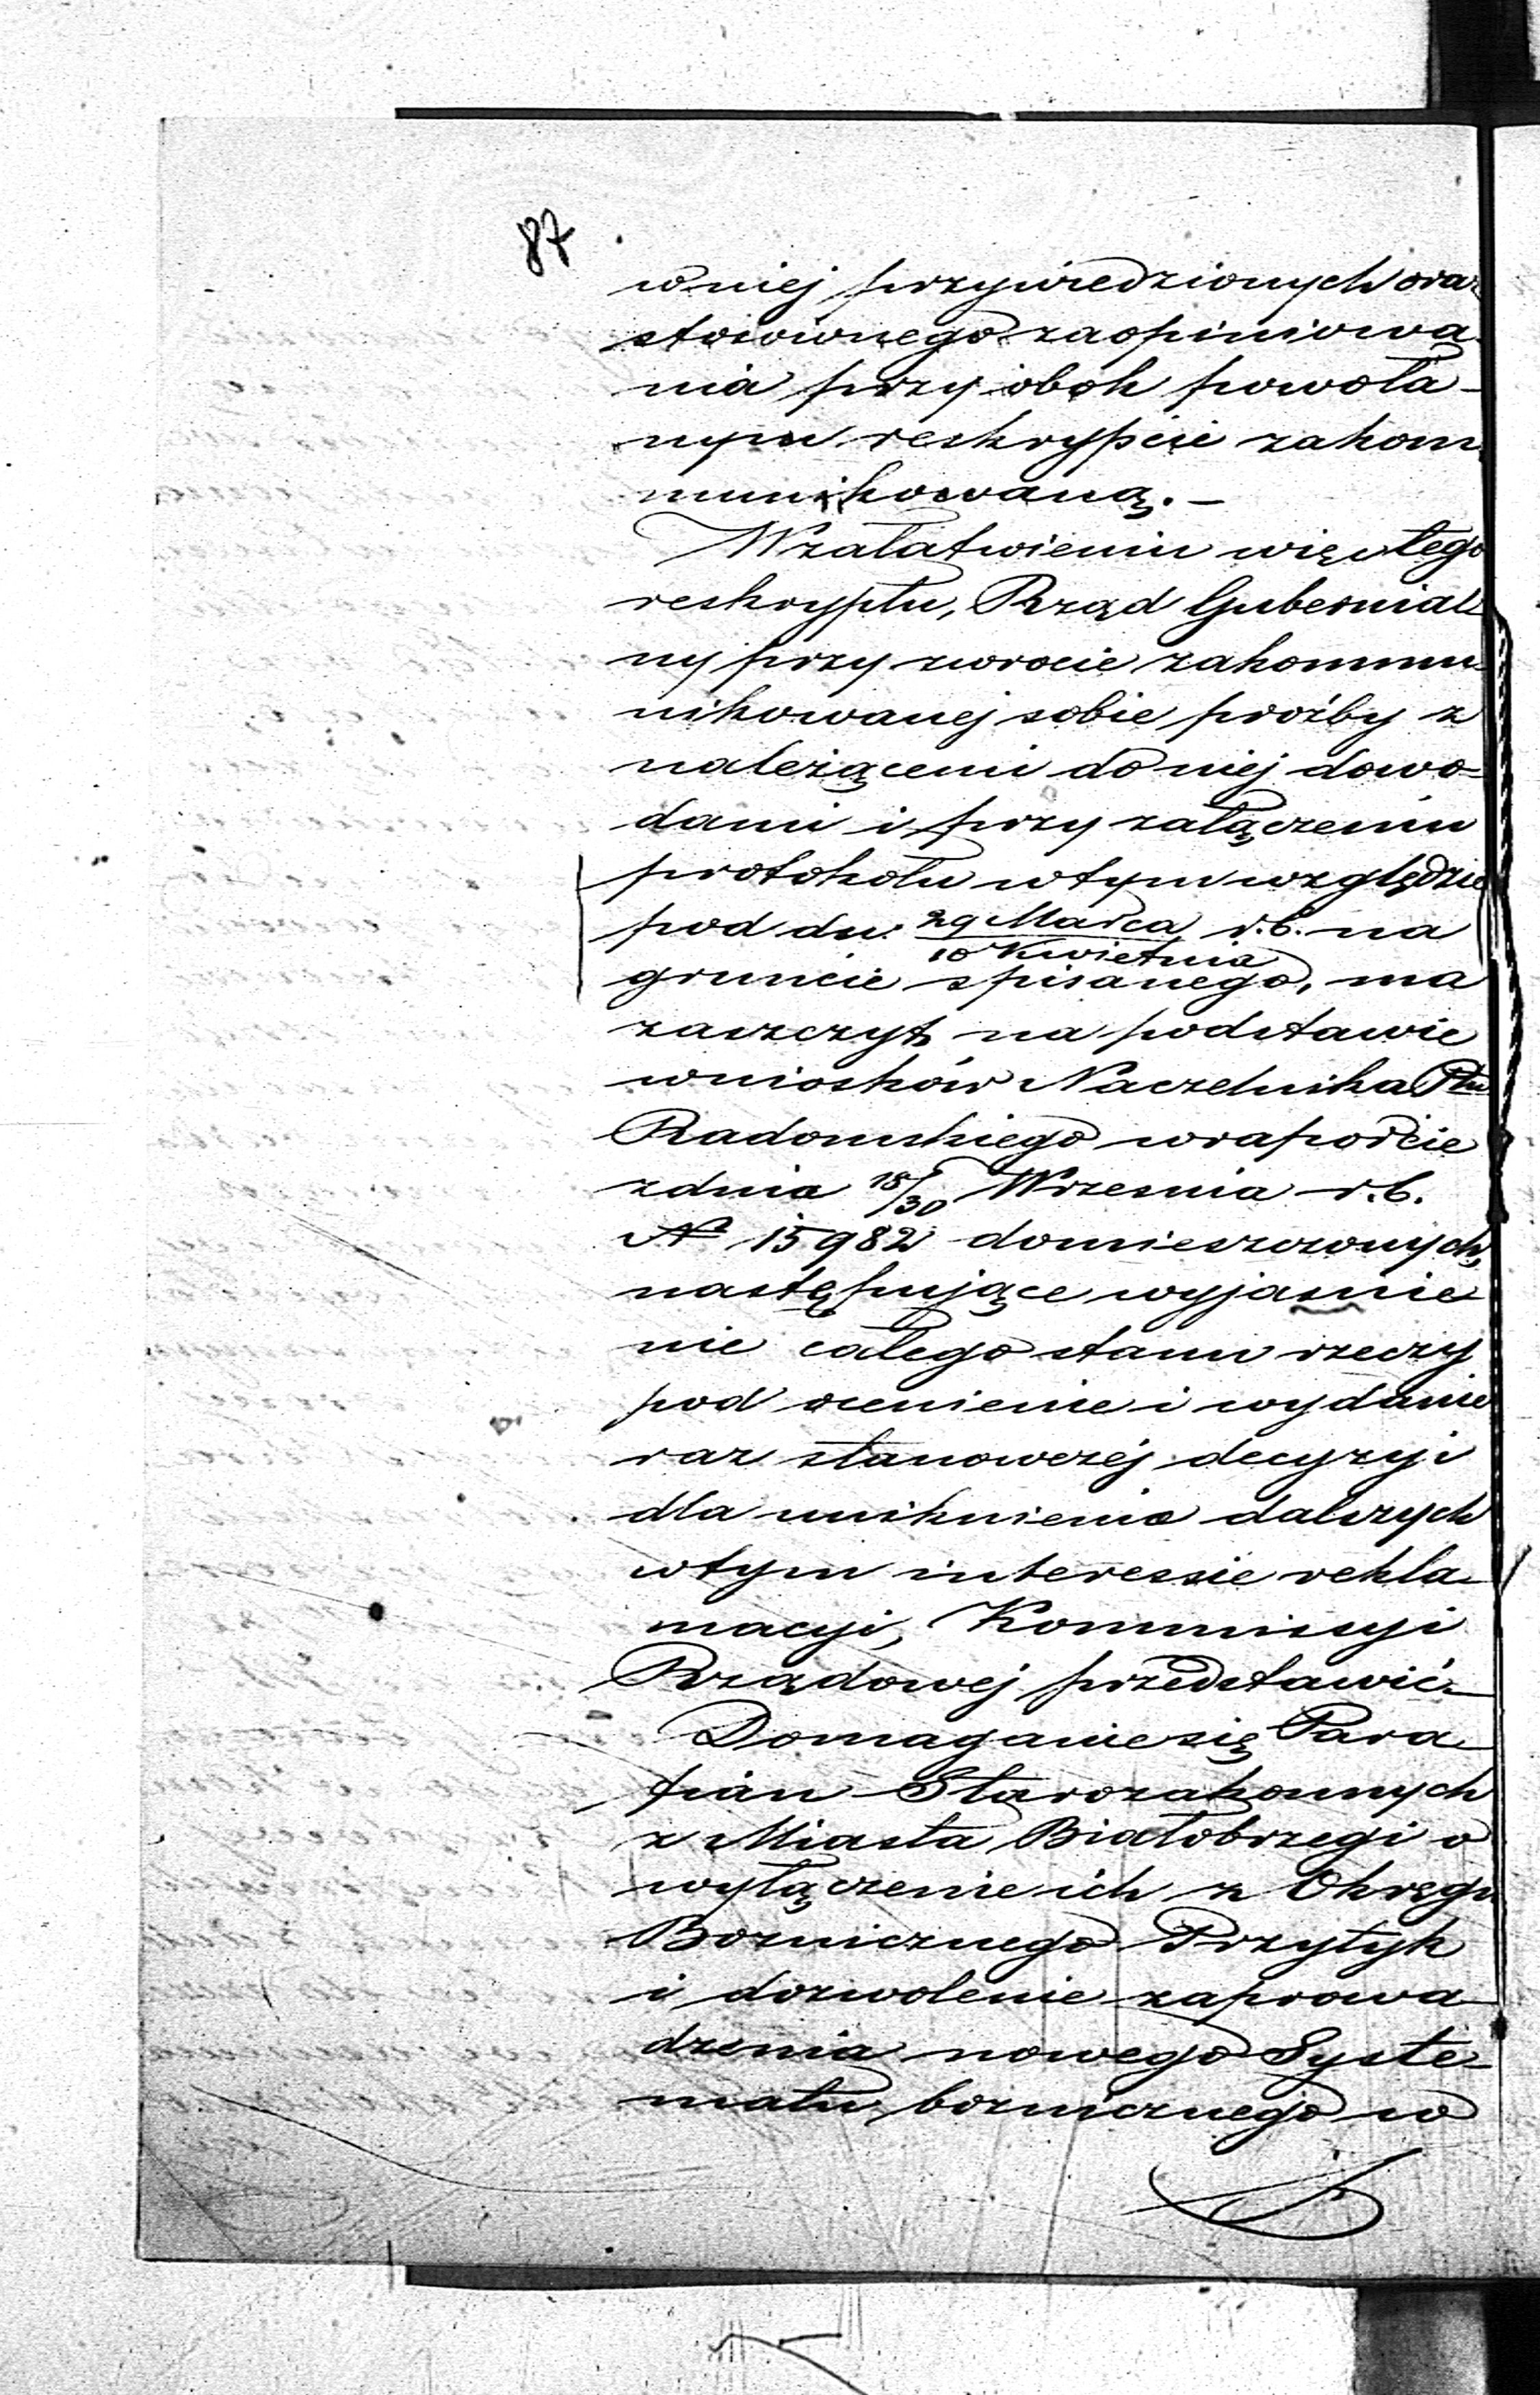 87
w niej przywiedzionych oraz
stosownego zaopiniowa
nia przy obok powoła-
nym reskrypcie zakom
munikowaną.-
W załatwieniu więc tego
reskryptu, Rząd Gubernial
ny przy zwrocie zakommu
nikowanej sobie proźby z
należącemi do niej dowo=
dami i przy załączeniu
protokołu w tym względzie
pod dn: 29 Marca / 10 Kwietnia r.b. na
gruncie spisanego, ma
zaszczyt na podstawie
wniosków Naczelnika Ptu
Radomskiego w raporcie
z dnia 18/30 Wrzesnia r.b.
№ 15982 domieszczonych,
następujące wyjasnie
nie całego stanu rzeczy
pod ocenienie i wydanie
raz stanowczéj decyzyi
dla uniknienia dalszych
w tym interessie rekla-
macyi, Kommissyi
Rządowej przedstawić-
Domaganie się Para
fian Starozakonnych
z Miasta Białobrzegi o
wyłączenie ich z Okręgu
Bozniczne­go Przytyk
i dozwolenie zaprowa-
dzenia nowego Syste-
matu bozniczne­go w